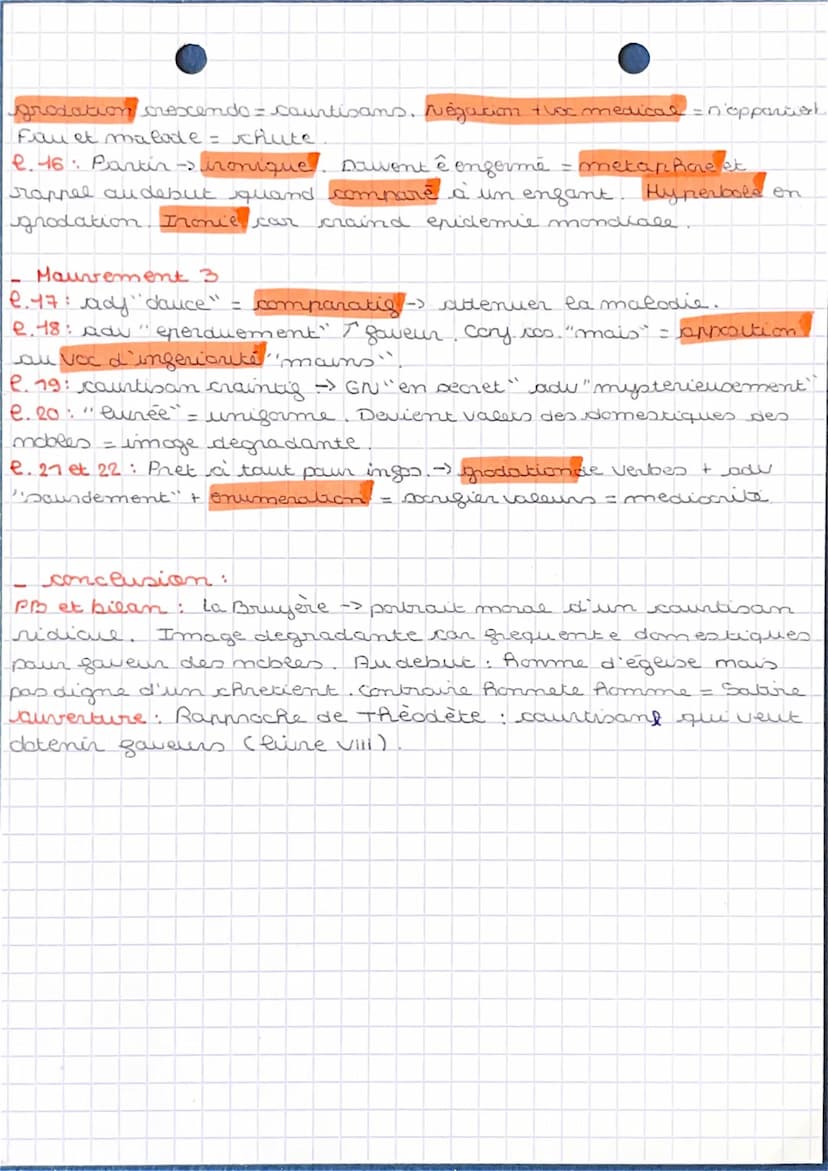 gradation crescendo = courtisans. Négation + voc medical = n'appartient
Fou et malade = chute.
l. 16 : Partir -> ironique. Doivent ê enfermé = metaphore et
rappel au debut quand comparé à un enfant. Hyperbole en
gradation. Ironie car craind epidemie mondiale.
- Mouvement 3
l. 17 : adj "douce" = comparatif -> attenuer la maladie.
l. 18 : adv "eperduement" ↗ faveur. Conj. coo. "mais" = opposition
au voc d'inferiorité "moins".
l. 19 : courtisan craintif -> GN "en secret" adv "mysterieusement"
l. 20 : "livrée" = uniforme. Devient valets des domestiques des
nobles = image degradante.
l. 21 et 22 : Pret à tout pour infos. -> gradation de verbes + adv
"sourdement" + énumeration = sacrifier valeurs = mediocrité
- conclusion :
PB et bilan : La Bruyère -> portrait moral d'un courtisan
ridicule. Image degradante car frequente domestiques
pour faveur des nobles. Au debut : homme d'église mais
pas digne d'un chretient. Contraire honnete homme = Satire
ouverture : Rapproche de Théodète : courtisane qui veut
obtenir faveurs (livre VIII).